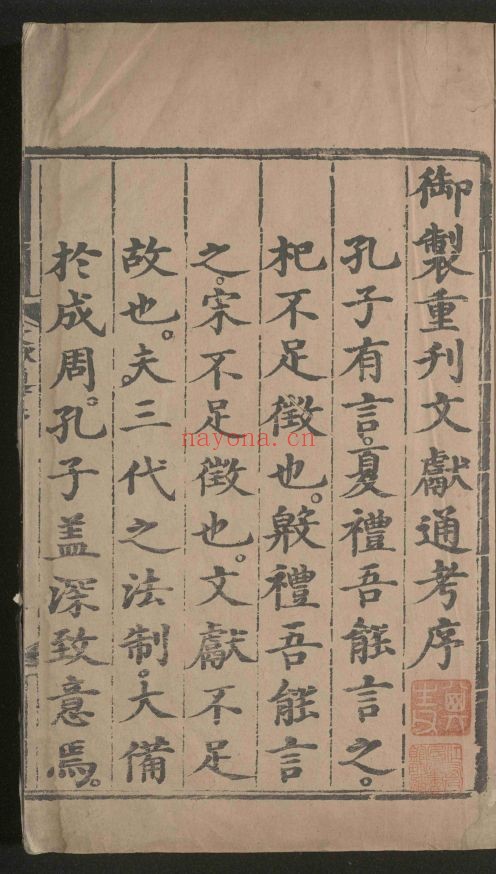 御製重刊文獻通考序
孔子有言。夏禮吾能言之。
杞不足徵也。殷禮吾能言
之。宋不足徵也。文獻不足
故也。夫三代之法制。大備
於成周。孔子盖深致意焉。
nayona.cn